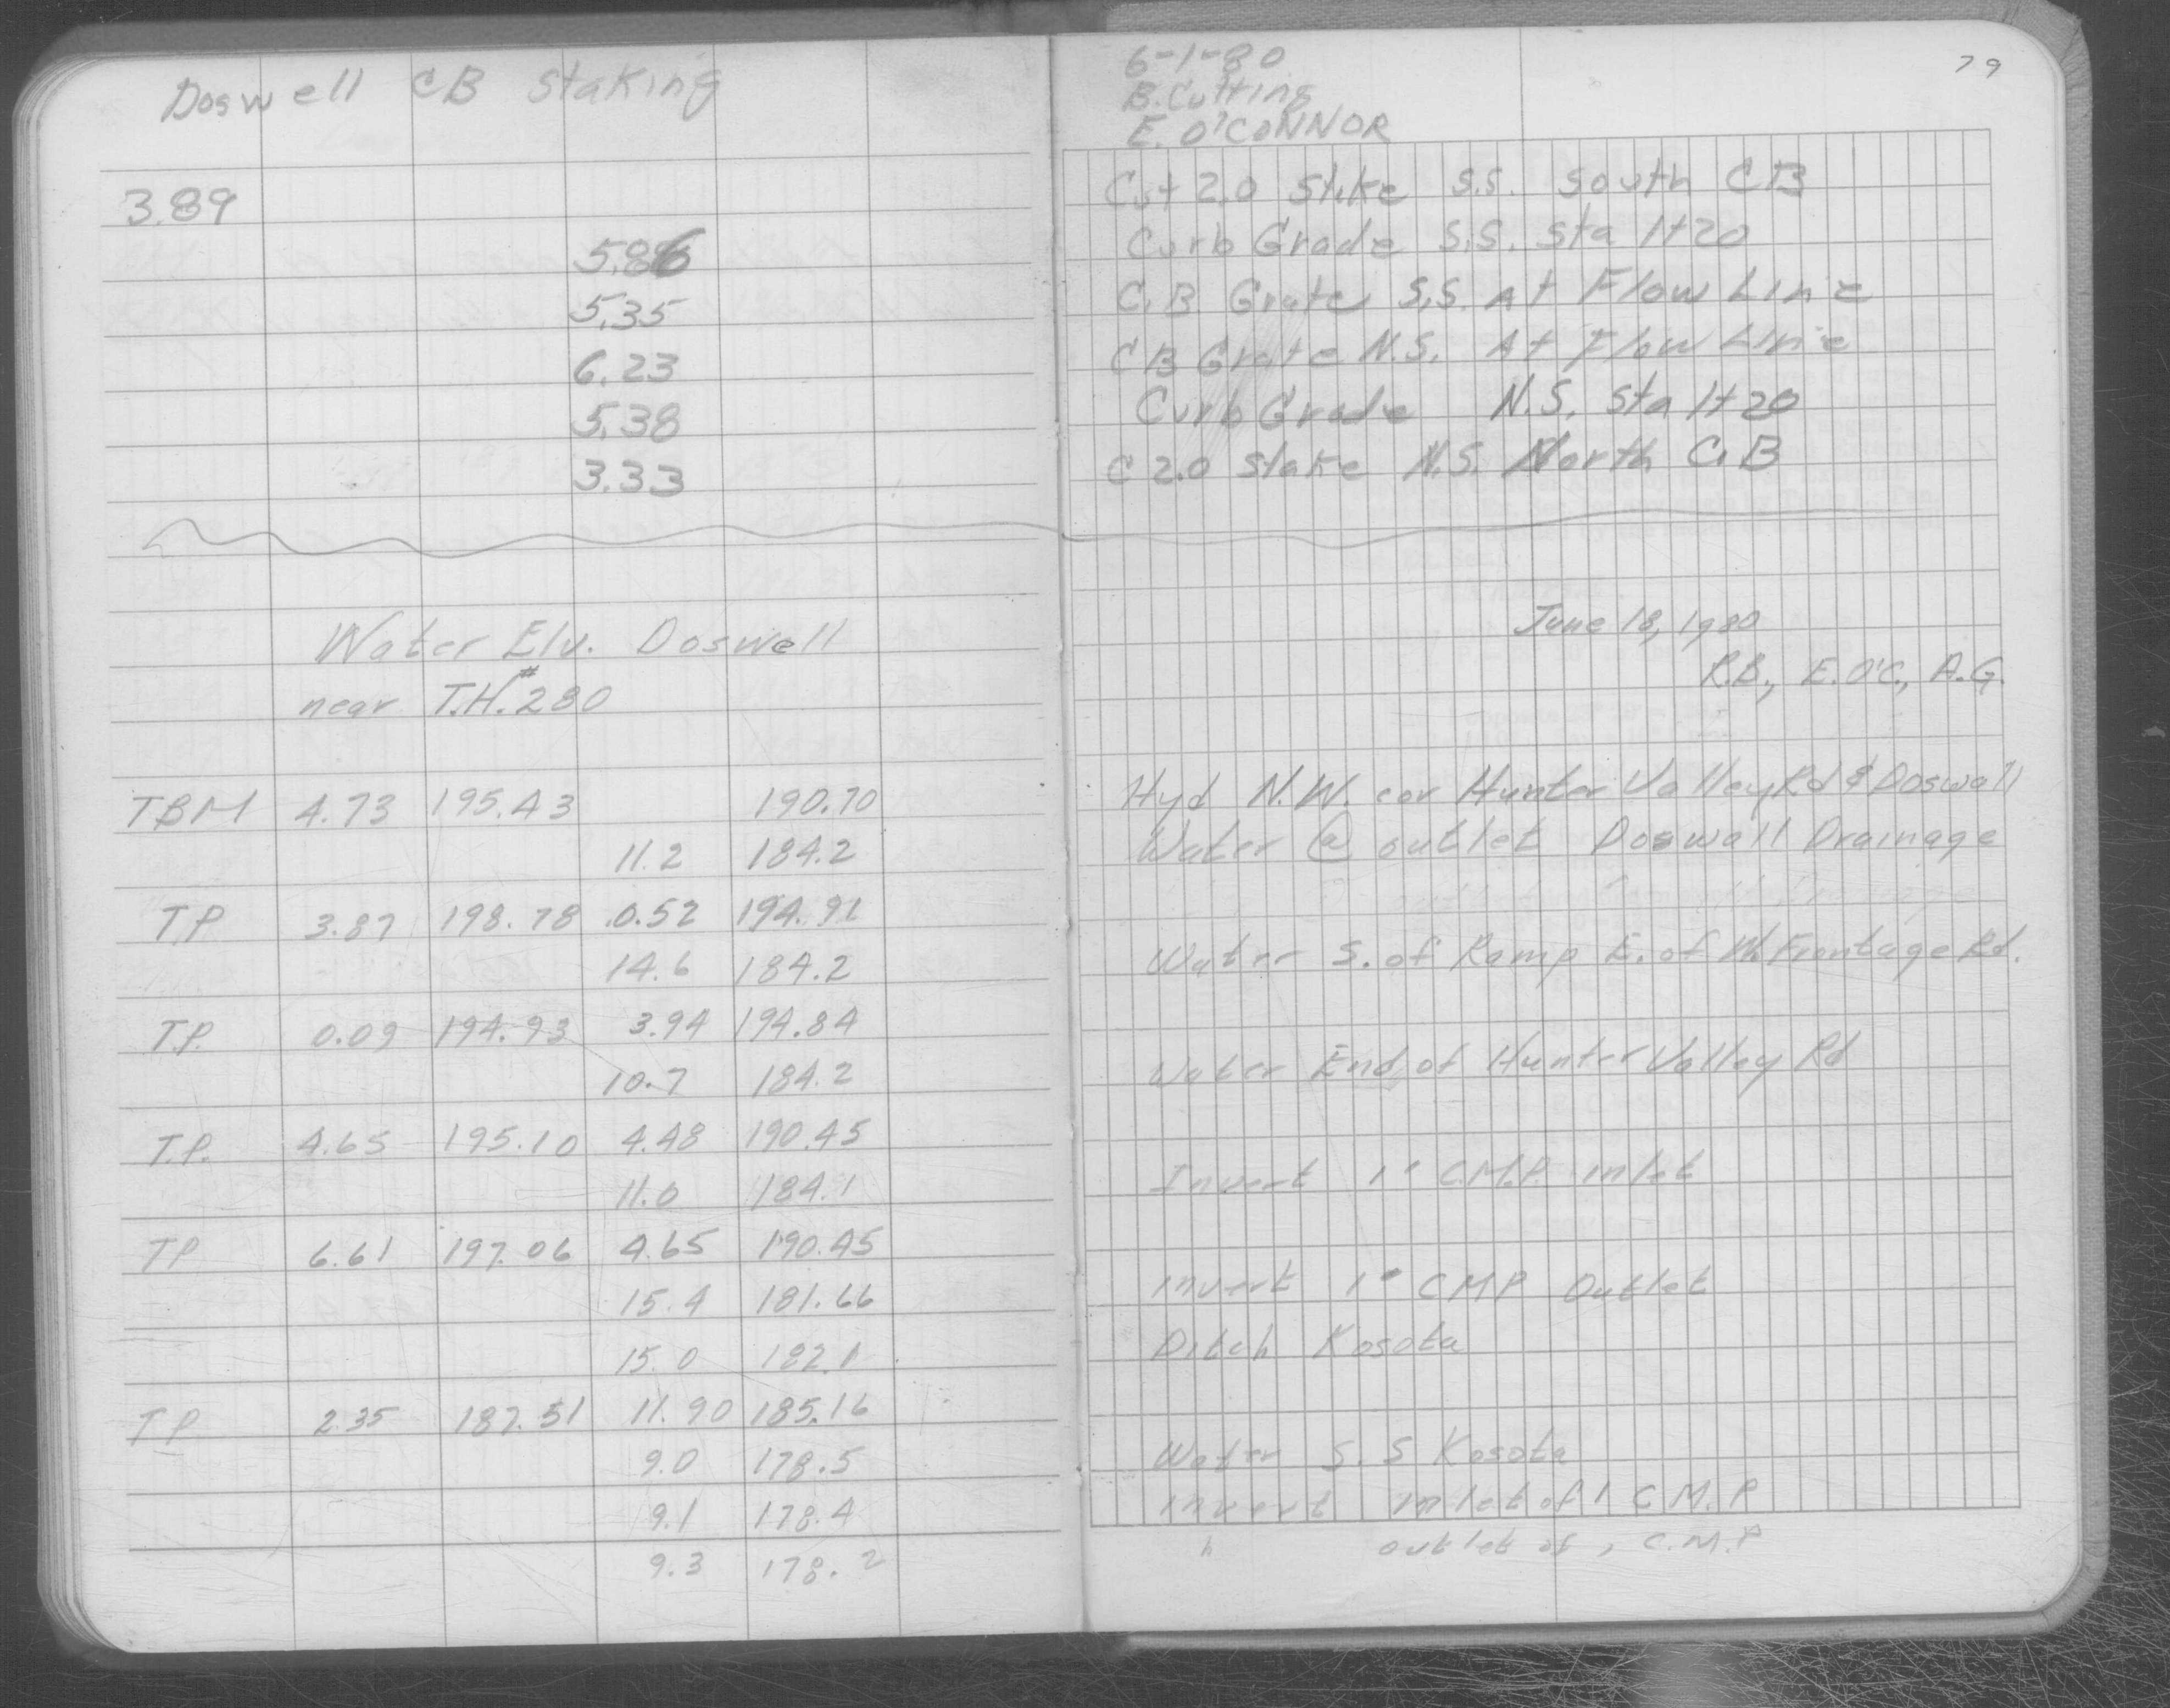 Doswell CB Staking
3.89
5.86
5.35
6.23
5.38
3.33
Water Elv. Doswell
near T.H.#280
TBM 4.73 195.43 190.70
11.2 184.2
T.P. 3.87 198.78 0.52 194.91
14.6 184.2
T.P. 0.09 194.93 3.94 194.84
10.7 184.2
T.P. 4.65 195.10 4.48 190.45
11.0 184.1
TP 6.61 197.06 4.65 190.45
15.4 181.66
15.0 182.1
TP 2.35 187.51 11.90 185.16
9.0 178.5
9.1 178.4
9.3 178.2
79
6-1-80
B. Cutting
E. O'CONNOR
Cut 2.0 Stake S.S. South CB
Curb Grade S.S. Sta 1+20
C.B. Grate S.S. At Flow Line
CB Grate N.S. At Flow Line
Curb Grade N.S. Sta 1+20
C 2.0 Stake N.S. North C.B
June 18, 1980
R.B., E.O'C., A.G.
Hyd N.W. cor Hunter Valley Rd & Doswall
Water @ outlet Doswall Drainage
Water S. of Ramp E. of W. Frontage Rd.
Water End of Hunter Valley Rd
Invert 1' C.M.P. inlet
Invert 1' CMP Outlet
Ditch Kosota
Water S.S Kosota
Invert inlet of 1 C.M.P
" outlet of , C.M.P